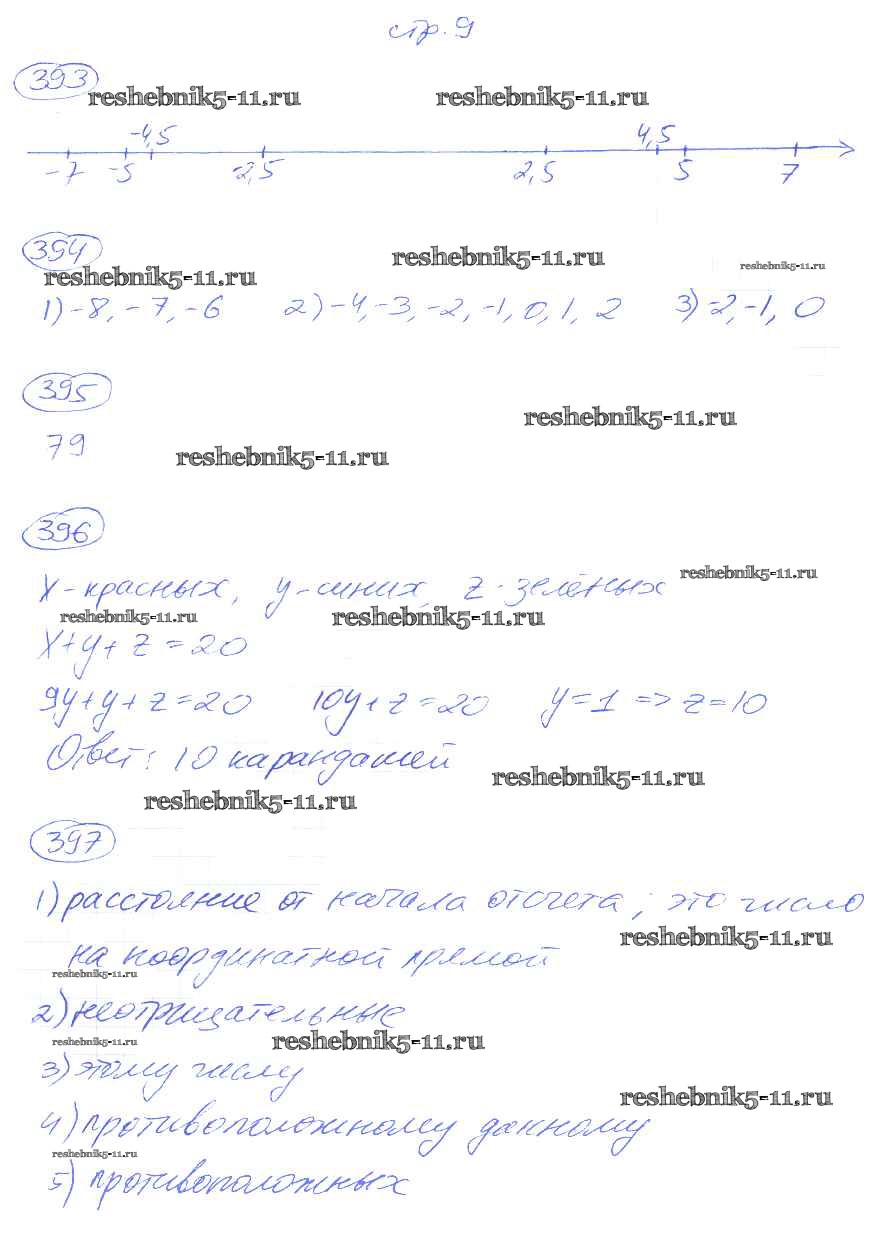 стр. 9
393
reshebnik5-11.ru reshebnik5-11.ru
-4,5 4,5
-7 -5 -2,5 2,5 5 7
394
reshebnik5-11.ru reshebnik5-11.ru reshebnik5-11.ru
1) -8, -7, -6 2) -4, -3, -2, -1, 0, 1, 2 3) -2, -1, 0
395
reshebnik5-11.ru
79
reshebnik5-11.ru
396
x - красных, y - синих, z - зелёных reshebnik5-11.ru
reshebnik5-11.ru reshebnik5-11.ru
x + y + z = 20
9y + y + z = 20 10y + z = 20 y = 1 => z = 10
Ответ: 10 карандашей
reshebnik5-11.ru
reshebnik5-11.ru
397
1) расстояние от начала отсчета; это число
reshebnik5-11.ru
на координатной прямой
reshebnik5-11.ru
2) неотрицательные
reshebnik5-11.ru reshebnik5-11.ru
3) этому числу
reshebnik5-11.ru
4) противоположному данному
reshebnik5-11.ru
5) противоположных